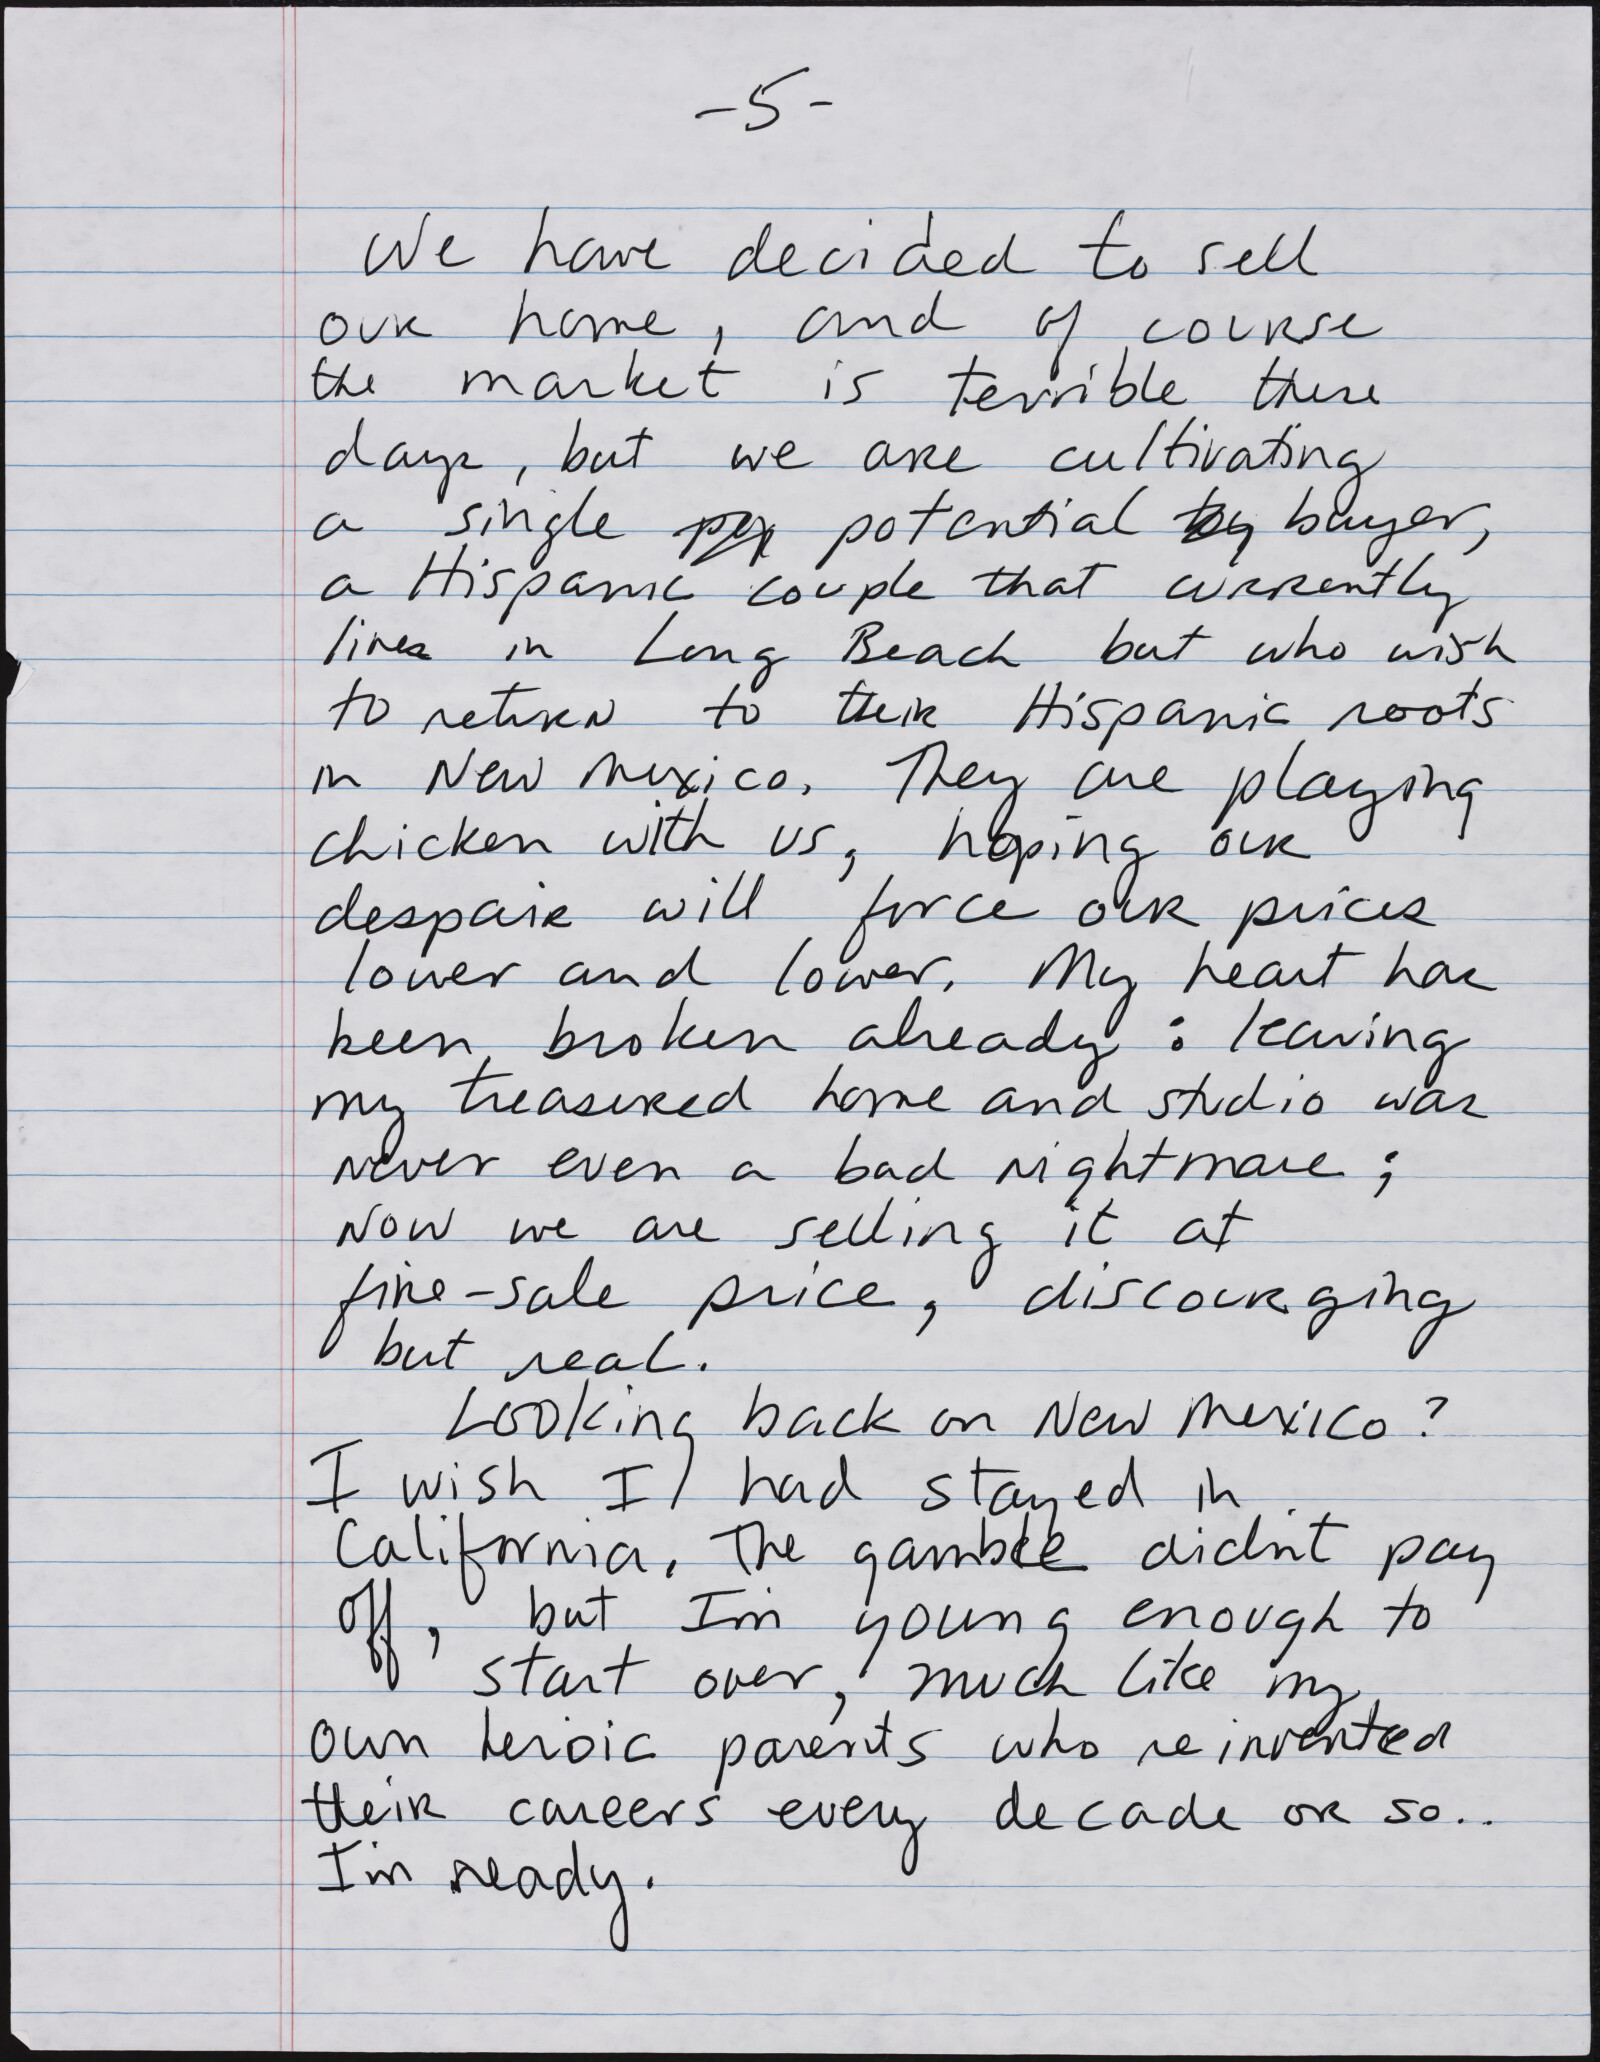 -5-
We have decided to sell
our home, and of course
the market is terrible these
days, but we are cultivating
a single potential buyer,
a Hispanic couple that currently
lives in Long Beach but who wish
to return to their Hispanic roots
in New Mexico. They are playing
chicken with us, hoping our
despair will force our prices
lower and lower. My heart has
been broken already: leaving
my treasured home and studio was
never even a bad nightmare;
now we are selling it at
fire-sale price, discourging
but real.
Looking back on New Mexico?
I wish I had stayed in
California. The gamble didn't pay
off, but I'm young enough to
start over, much like my
own heroic parents who reinvented
their careers every decade or so..
I'm ready.